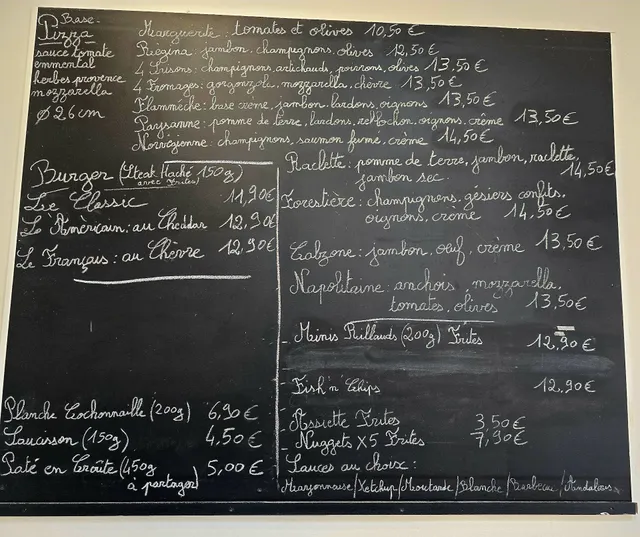 Base.
Pizza
sauce tomate
emmental
herbes provence
mozzarella
Ø 26 cm
Marguerite : tomates et olives 10,50 €
Régina : jambon, champignons, olives 12,50 €
4 Saisons : champignons, artichauds, poivrons, olives 13,50 €
4 Fromages : gorgonzola, mozzarella, chèvre 13,50 €
Flammèche : base crème, jambon, lardons, oignons 13,50 €
Paysanne : pomme de terre, lardons, reblochon, oignons, crème 13,50 €
Norvégienne : champignons, saumon fumé, crème 14,50 €
Raclette : pomme de terre, jambon, raclette,
jambon sec 14,50 €
Forestière : champignons, gésiers confits,
oignons, crème 14,50 €
Calzone : jambon, œuf, crème 13,50 €
Napolitaine : anchois, mozzarella,
tomates, olives 13,50 €
- Minis Rillauds (200g) Frites 12,90 €
- Fish n' Chips 12,90 €
- Assiette Frites 3,50 €
- Nuggets X5 Frites 7,90 €
Sauces au choix :
Mayonnaise / Ketchup / Moutarde / Blanche / Barbecue / Andalouse
Burger (Steak Haché 150g)
avec Frites
Le Classic 11,90 €
Le Américain : au Cheddar 12,90 €
Le Français : au Chèvre 12,90 €
Planche Cochonnaille (200g) 6,90 €
Saucisson (150g) 4,50 €
Paté en Croûte (450g 5,00 €
à partager)